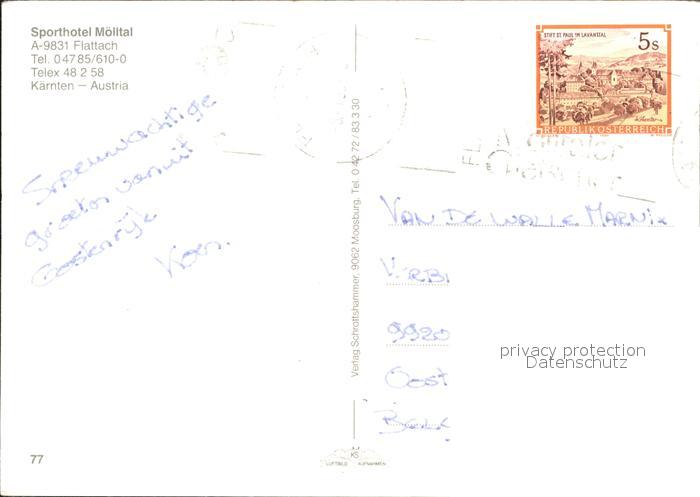 Sporthotel Mölltal
A-9831 Flattach
Tel. 04785/610-0
Telex 48 2 58
Kärnten – Austria
Sneeuwachtige
groeten vanuit
Oostenrijk
Koen.
Verlag Schrottshammer, 9062 Moosburg, Tel. 0 42 72 / 83 3 30
STIFT ST. PAUL IM LAVANTTAL
5s
REPUBLIK ÖSTERREICH
VAN DE WALLE MARNIX
9920
Oost
privacy protection
Datenschutz
77
KS
LUFTBILD AUFNAHMEN